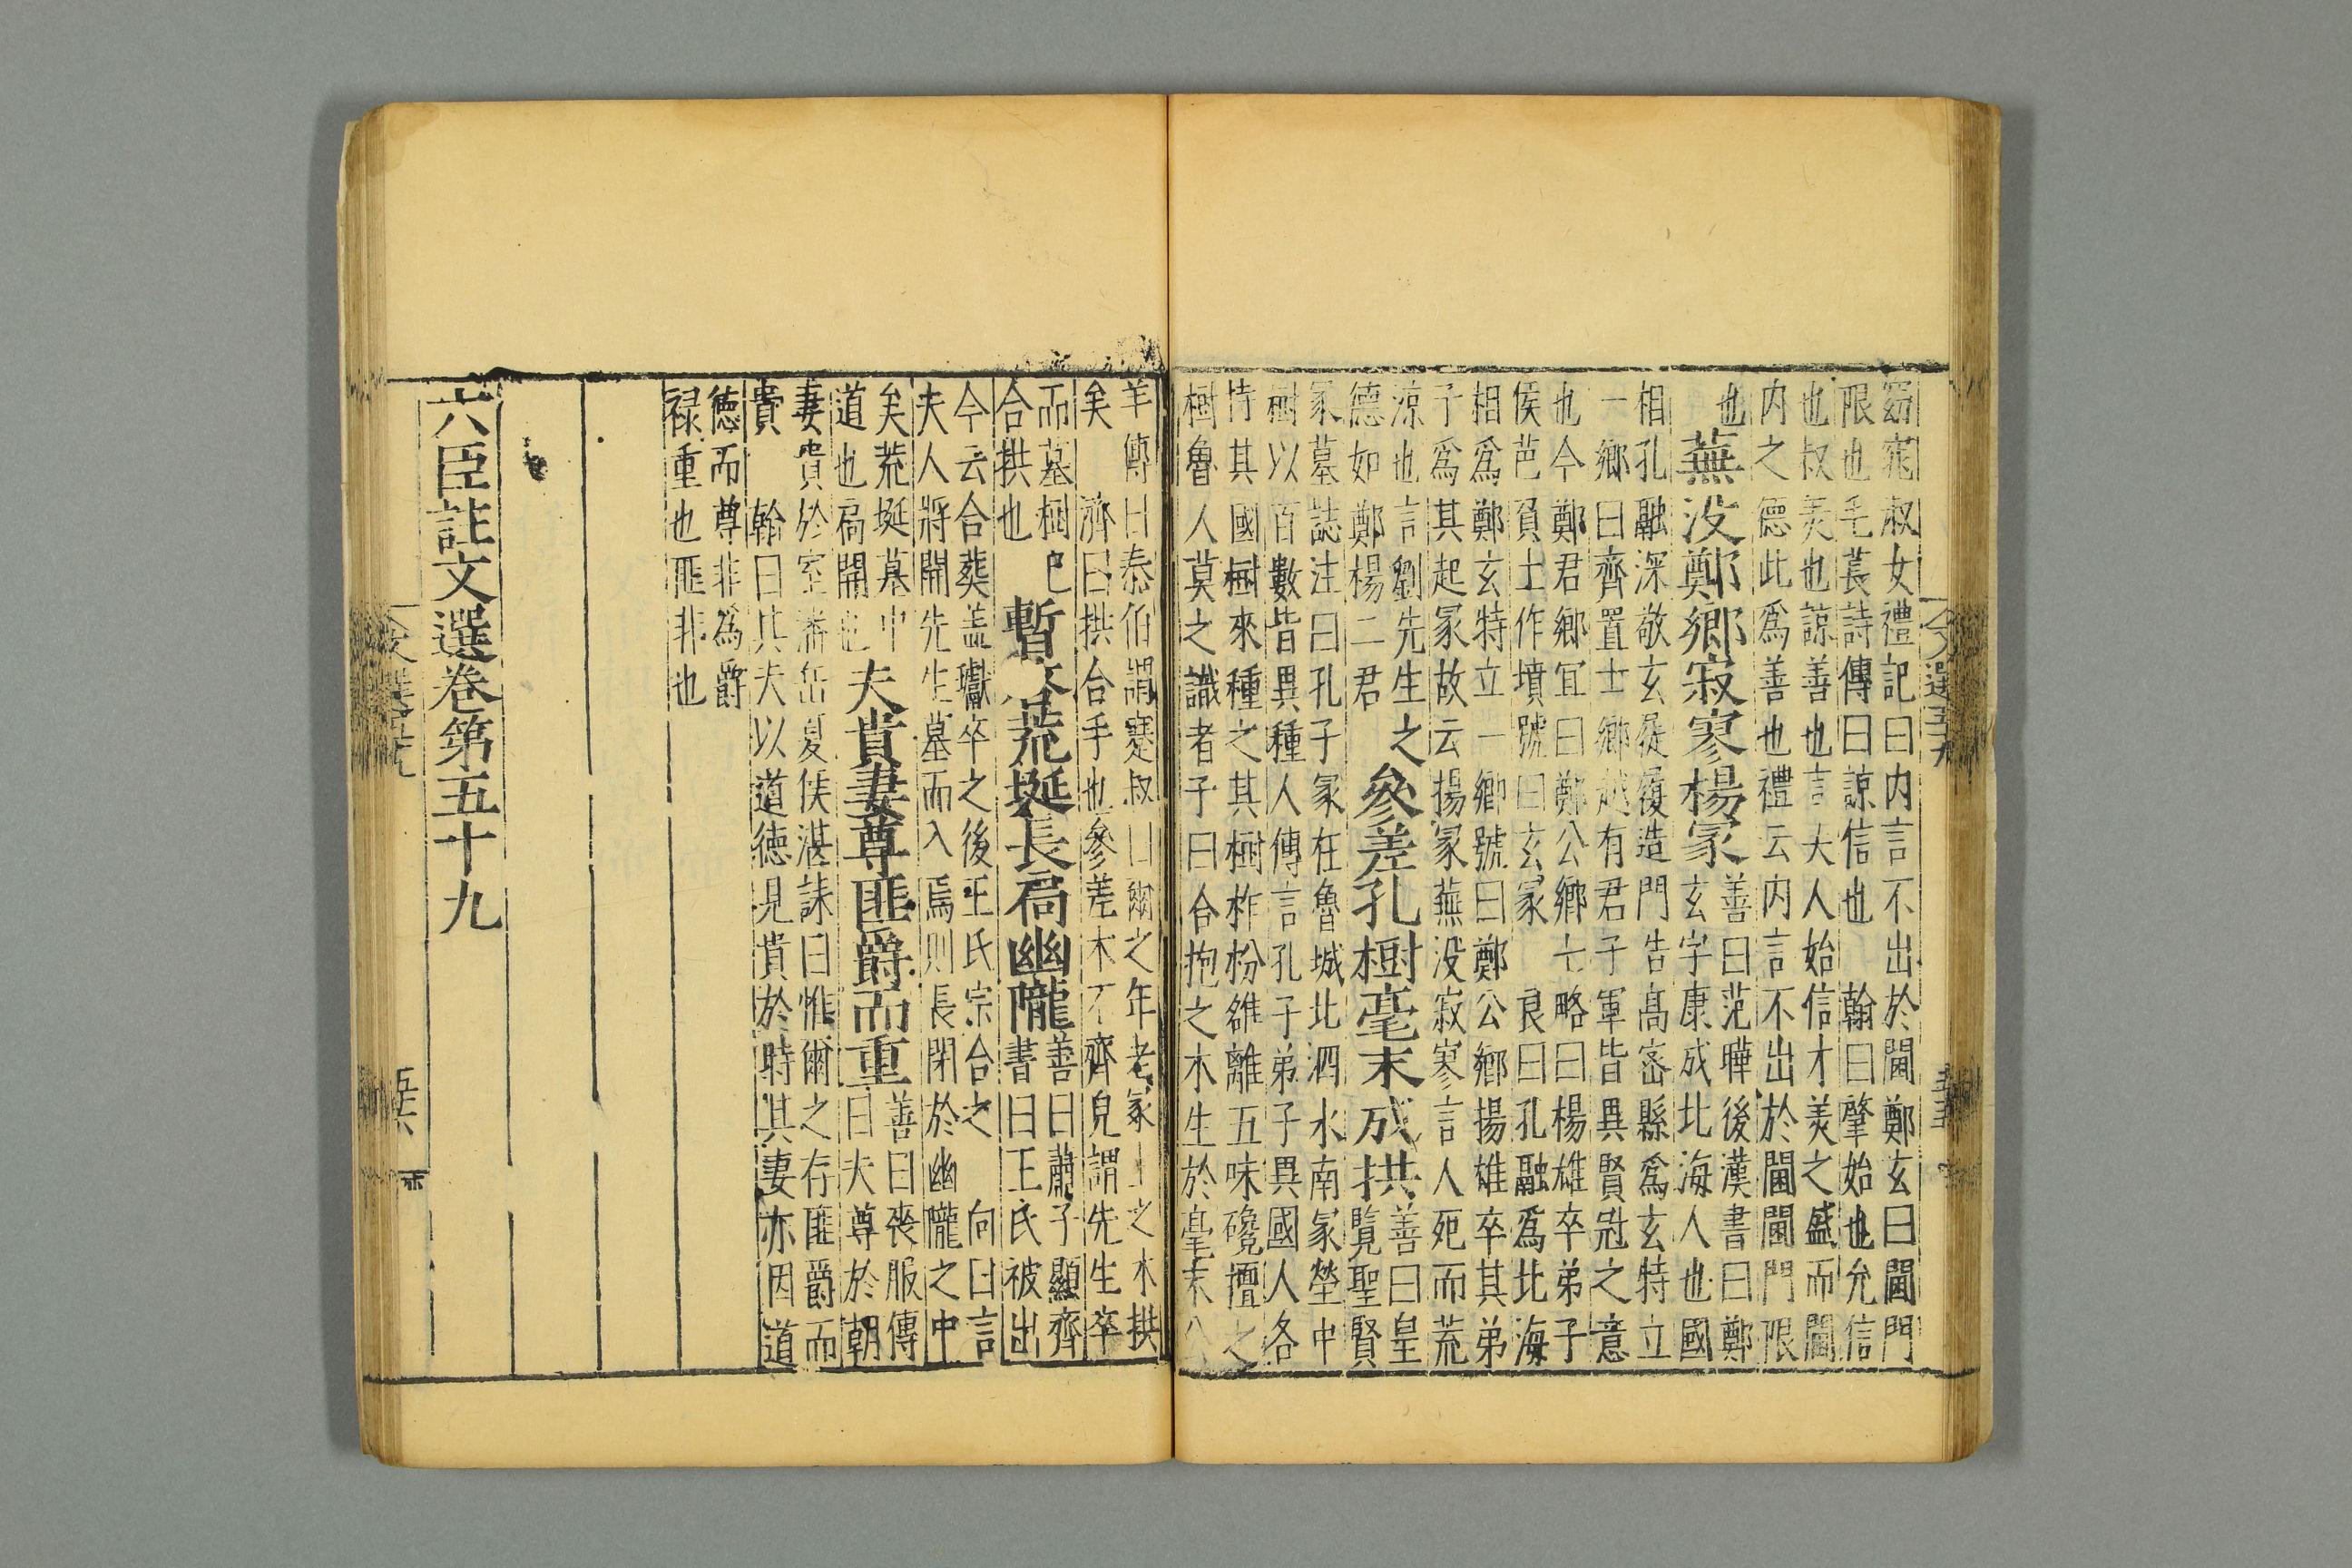 窈窕淑女禮記曰内言不出於閫鄭玄曰閫門
限也毛萇詩傳曰諒信也　翰曰肇始也允信
也叔美也諒善也言大人始信才美之盛而閫
内之德此爲善也禮云内言不出於閫閫門限
也
蕪没鄭鄉寂寥楊冢
善曰范曄後漢書曰鄭
玄字康成北海人也國
相孔融深敬玄屣履造門告高密縣爲玄特立
一鄉曰齊置士鄉越有君子軍皆異賢之意
也今鄭君鄉宜曰鄭公鄉七略曰楊雄卒弟子
侯芭負土作墳號曰玄冢　良曰孔融爲北海
相爲鄭玄特立一鄉號曰鄭公鄉揚雄卒其弟
子爲其起冢故云揚冢蕪没寂寥言人死而荒
涼也言劉先生之
德如鄭楊二君
參差孔樹毫末成拱
善曰皇
覽聖賢
冢墓誌注曰孔子冢在魯城北泗水南冢塋中
樹以百數皆異種人傳言孔子弟子異國人各
恃其國樹來種之其樹柞枌雒離五味㲯檀之
樹魯人莫之識者子曰合抱之木生於毫末
羊傳曰泰伯謂蹇叔曰爾之年老冢上之木拱
矣　濟曰拱合手也參差木不齊皃謂先生卒
而墓樹已
合拱也
暫荒埏長扃幽隴
善曰蕭子顯齊
書曰王氏被出
今云合葬盖瓛卒之後王氏宗合之　向曰言
夫人將開先生墓而入焉則長閉於幽隴之中
矣荒埏墓中
道也扃開也
夫貴妻尊匪爵而重
善曰喪服傳
曰夫尊於朝
妻貴於室潘岳夏侯湛誄曰惟爾之存匪爵而
貴　翰曰其夫以道德見貴於時其妻亦因道
德而尊非為爵
禄重也匪非也
六臣註文選卷第五十九